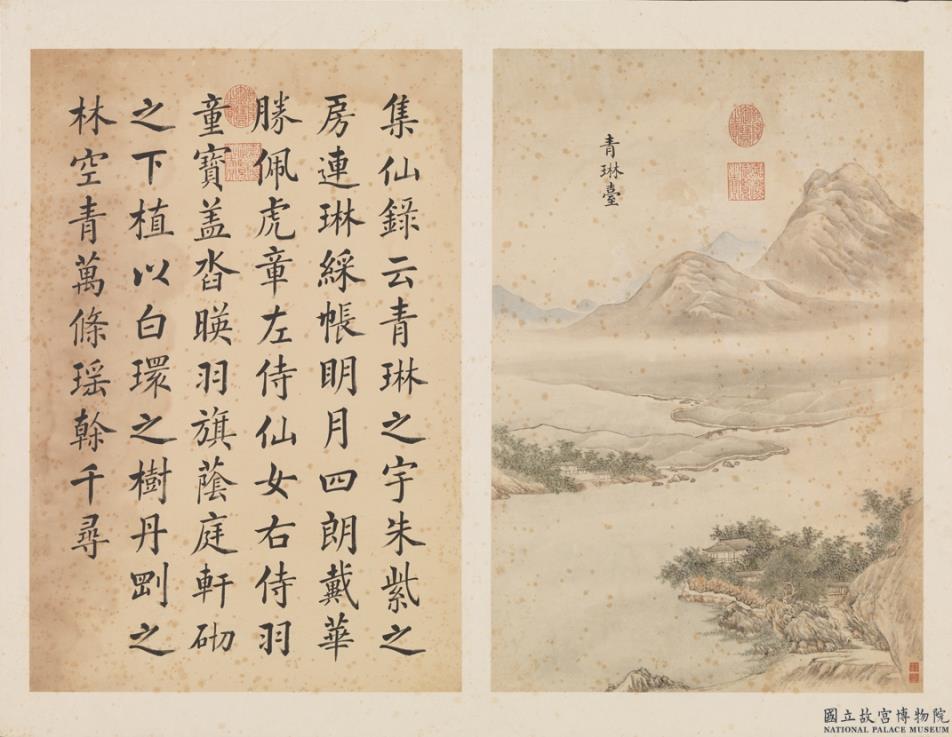 青琳臺
集仙錄云青琳之宇朱紫之
房連琳綵帳明月四朗戴華
勝佩虎章左侍仙女右侍羽
童寶盖沓暎羽旗蔭庭軒砌
之下植以白環之樹丹剛之
林空青萬條瑶榦千尋
國立故宮博物院
NATIONAL PALACE MUSEUM